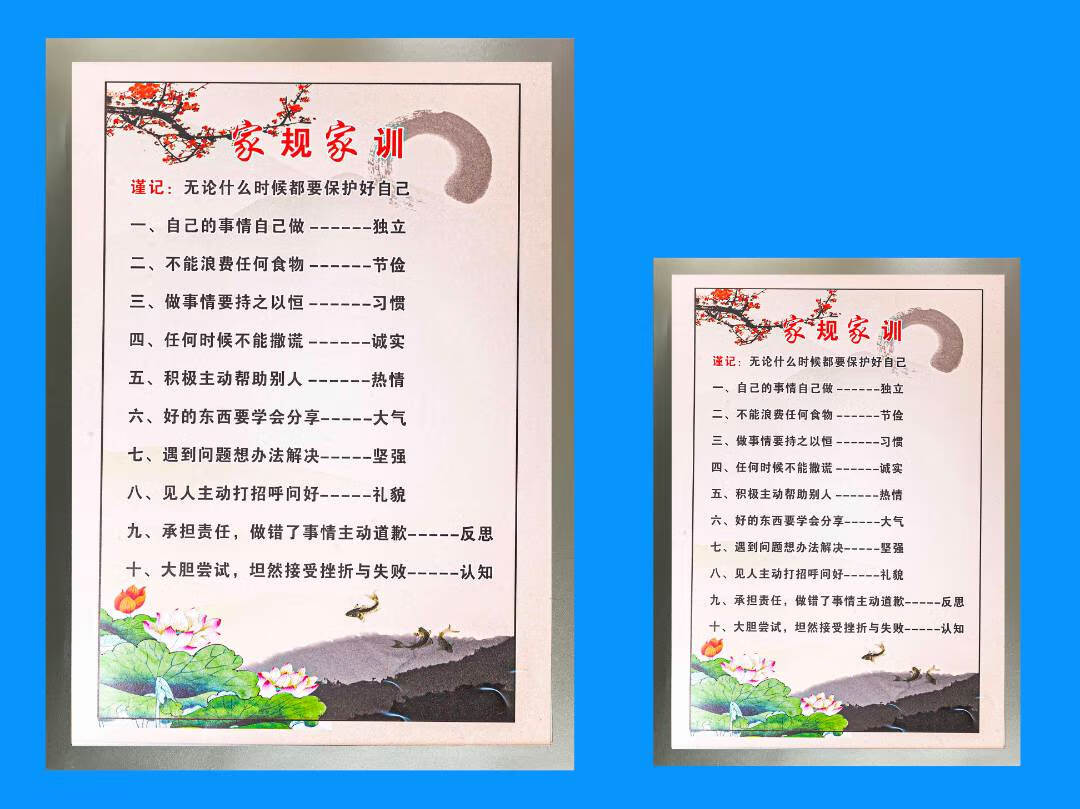 家规家训
谨记：无论什么时候都要保护好自己
一、自己的事情自己做------独立
二、不能浪费任何食物------节俭
三、做事情要持之以恒------习惯
四、任何时候不能撒谎------诚实
五、积极主动帮助别人------热情
六、好的东西要学会分享-----大气
七、遇到问题想办法解决-----坚强
八、见人主动打招呼问好-----礼貌
九、承担责任，做错了事情主动道歉-----反思
十、大胆尝试，坦然接受挫折与失败-----认知
家规家训
谨记：无论什么时候都要保护好自己
一、自己的事情自己做------独立
二、不能浪费任何食物------节俭
三、做事情要持之以恒------习惯
四、任何时候不能撒谎------诚实
五、积极主动帮助别人------热情
六、好的东西要学会分享-----大气
七、遇到问题想办法解决-----坚强
八、见人主动打招呼问好-----礼貌
九、承担责任，做错了事情主动道歉-----反思
十、大胆尝试，坦然接受挫折与失败-----认知